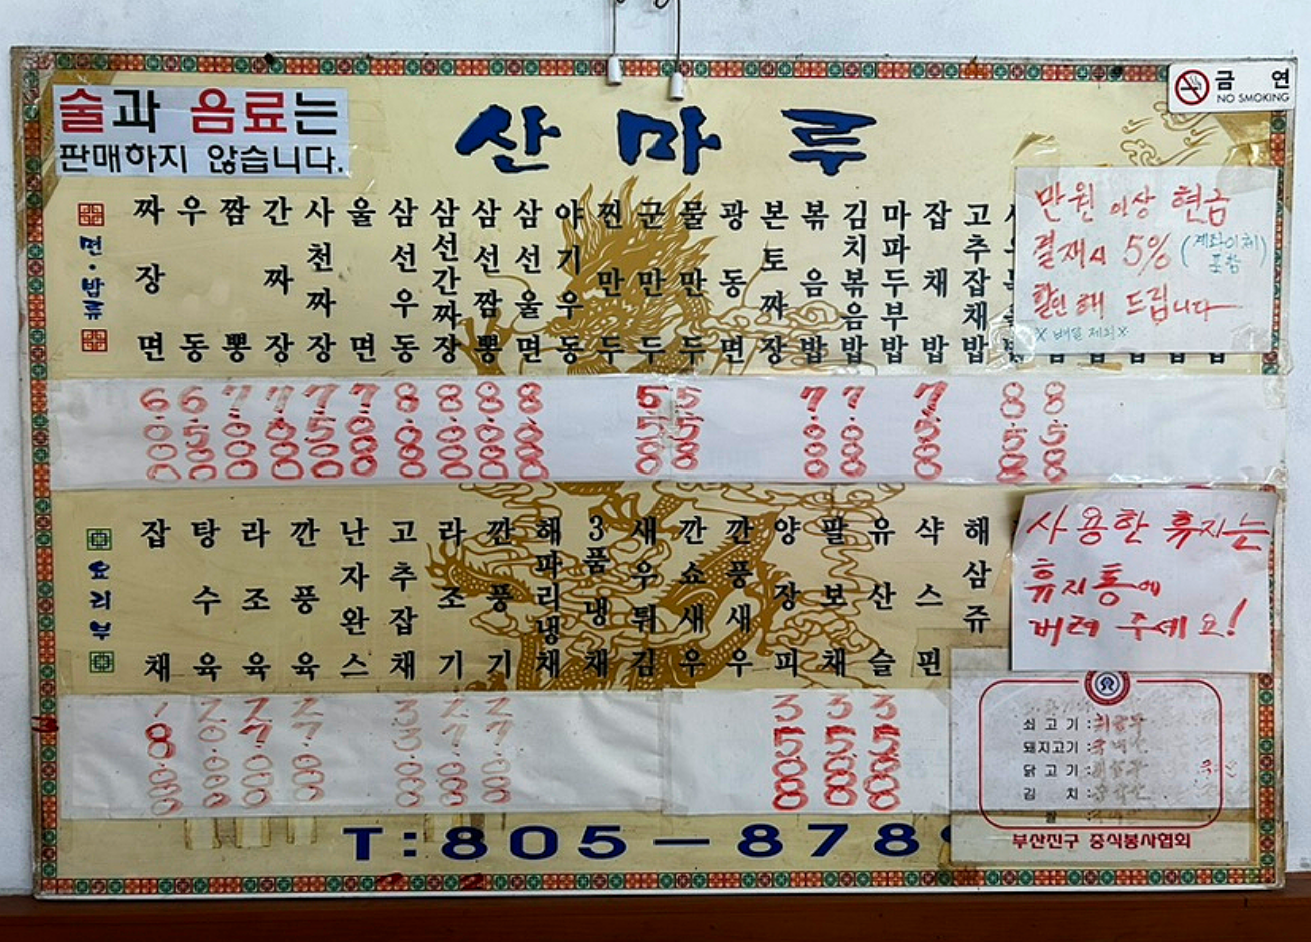 술과 음료는
판매하지 않습니다.
산마루
금 연
NO SMOKING
면·밥류
짜장면
우동
짬뽕
간짜장
사천짜장
울면
삼선우동
삼선간짜장
삼선짬뽕
삼선울면
야기우동
찐만두
군만두
물만두
광동면
본토짜장
볶음밥
김치볶음밥
마파두부밥
잡채밥
고추잡채밥
만원 이상 현금
결재시 5% (계좌이체 포함)
할인 해 드립니다
※ 배달 제외 ※
6.000
6.500
7.000
7.000
7.500
7.000
8.000
8.000
8.000
8.000
5.500
5.500
7.000
7.000
8.500
8.500
요리부
잡채
탕수육
라조육
깐풍육
난자완스
고추잡채
라조기
깐풍기
해파리냉채
3품냉채
새우튀김
깐쇼새우
깐풍새우
양장피
팔보채
유산슬
샥스핀
해삼쥬
사용한 휴지는
휴지통에
버려 주세요!
18.000
20.000
27.000
27.000
33.000
27.000
27.000
35.000
35.000
35.000
쇠 고 기 :
돼지고기 :
닭 고 기 :
김 치 :
쌀 :
부산진구 중식봉사협회
T:805-878